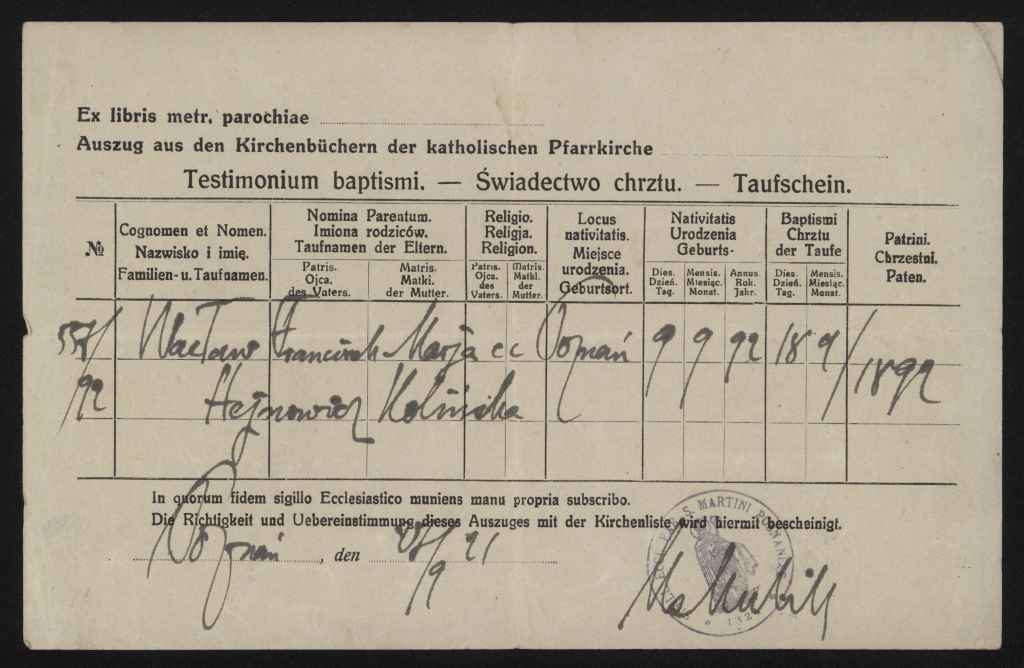 Ex libris metr. parochiae
Auszug aus den Kirchenbüchern der katholischen Pfarrkirche
Testimonium baptismi. — Świadectwo chrztu. — Taufschein.
№
Cognomen et Nomen.
Nazwisko i imię.
Familien- u. Taufnamen.
Nomina Parentum.
Imiona rodziców.
Taufnamen der Eltern.
Patris.
Ojca.
des Vaters.
Matris.
Matki.
der Mutter.
Religio.
Religja.
Religion.
Patris.
Ojca.
des
Vaters.
Matris.
Matki.
der
Mutter.
Locus
nativitatis.
Miejsce
urodzenia.
Geburtsort.
Nativitatis
Urodzenia
Geburts-
Dies.
Dzień.
Tag.
Mensis.
Miesiąc.
Monat.
Annus.
Rok.
Jahr.
Baptismi
Chrztu
der Taufe
Dies.
Dzień.
Tag.
Mensis.
Miesiąc.
Monat.
Patrini.
Chrzestni.
Paten.
Wacław Franciszek Marja c c Poznań 9 9 92 18 9/1892
/92 Hejnowicz Kolińska
In quorum fidem sigillo Ecclesiastico muniens manu propria subscribo.
Die Richtigkeit und Uebereinstimmung dieses Auszuges mit der Kirchenliste wird hiermit bescheinigt.
Poznań, den /9 21
S. MARTINI POSNANI